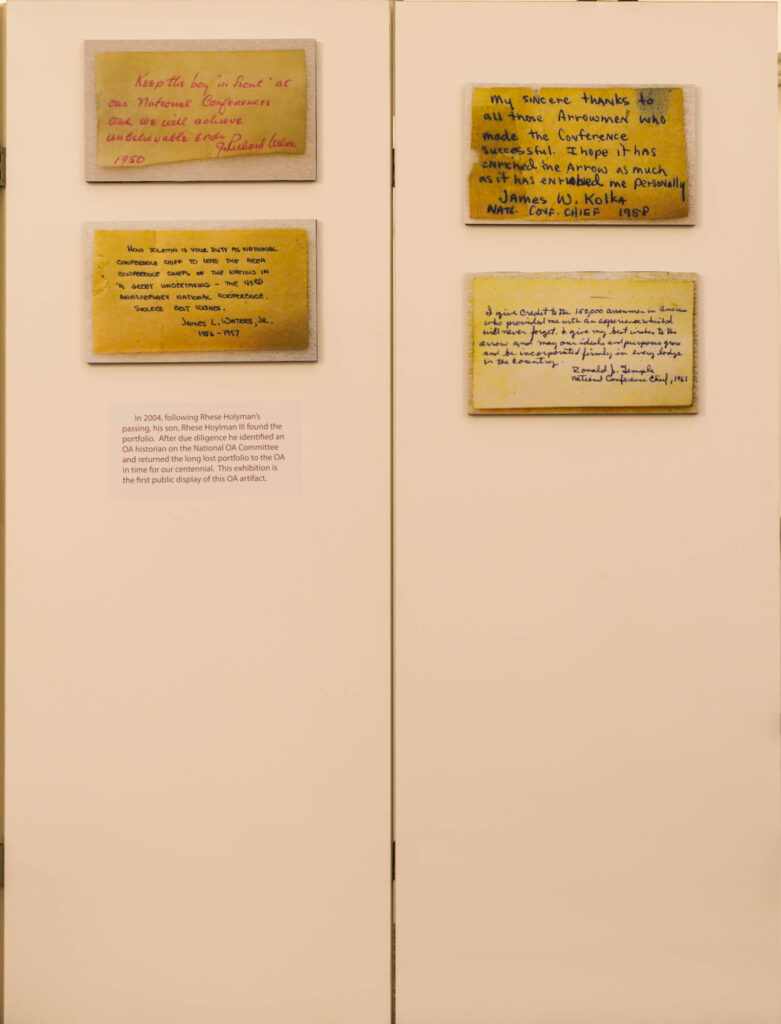 Keep the boy "in front" at
our National Conferences
and we will achieve
unbelievable ends.
J. Richard Wilson
1950
HOW SOLEMN IS YOUR DUTY AS NATIONAL
CONFERENCE CHIEF TO LEAD THE AREA
CONFERENCE CHIEFS OF THE NATION IN
A GREAT UNDERTAKING - THE
ANNIVERSARY NATIONAL CONFERENCE.
SINCERE BEST WISHES,
JAMES L. WATERS, JR.
1956-1957
In 2004, following Rhese Holyman's
passing, his son, Rhese Hoylman III found the
portfolio. After due diligence he identified an
OA historian on the National OA Committee
and returned the long lost portfolio to the OA
in time for our centennial. This exhibition is
the first public display of this OA artifact.
My sincere thanks to
all those Arrowmen who
made the Conference
successful. I hope it has
enriched the Arrow as much
as it has ennobled me personally
James W. Kolka
NATL. CONF. CHIEF 1958
I give credit to the 150,000 arrowmen in America
who provided me with an experience which I
will never forget. I give my best wishes to the
arrow and may our ideals and purposes grow
and be incorporated firmly in every lodge
in the country.
Ronald J. Temple
National Conference Chief, 1963